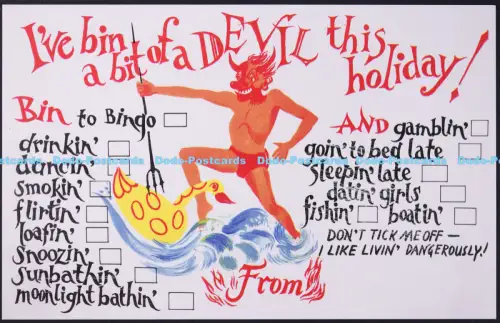 I've bin
a bit of a DEVIL this
holiday!
BIN to BINGO
drinkin'
dancin'
smokin'
flirtin'
loafin'
snoozin'
sunbathin'
moonlight bathin'
AND gamblin'
goin' to bed late
sleepin' late
datin' girls
fishin' boatin'
DON'T TICK ME OFF —
LIKE LIVIN' DANGEROUSLY!
From
Dodo-Postcards Dodo-Postcards Dodo-Postcards Dodo-Postcards Dodo-Postcards